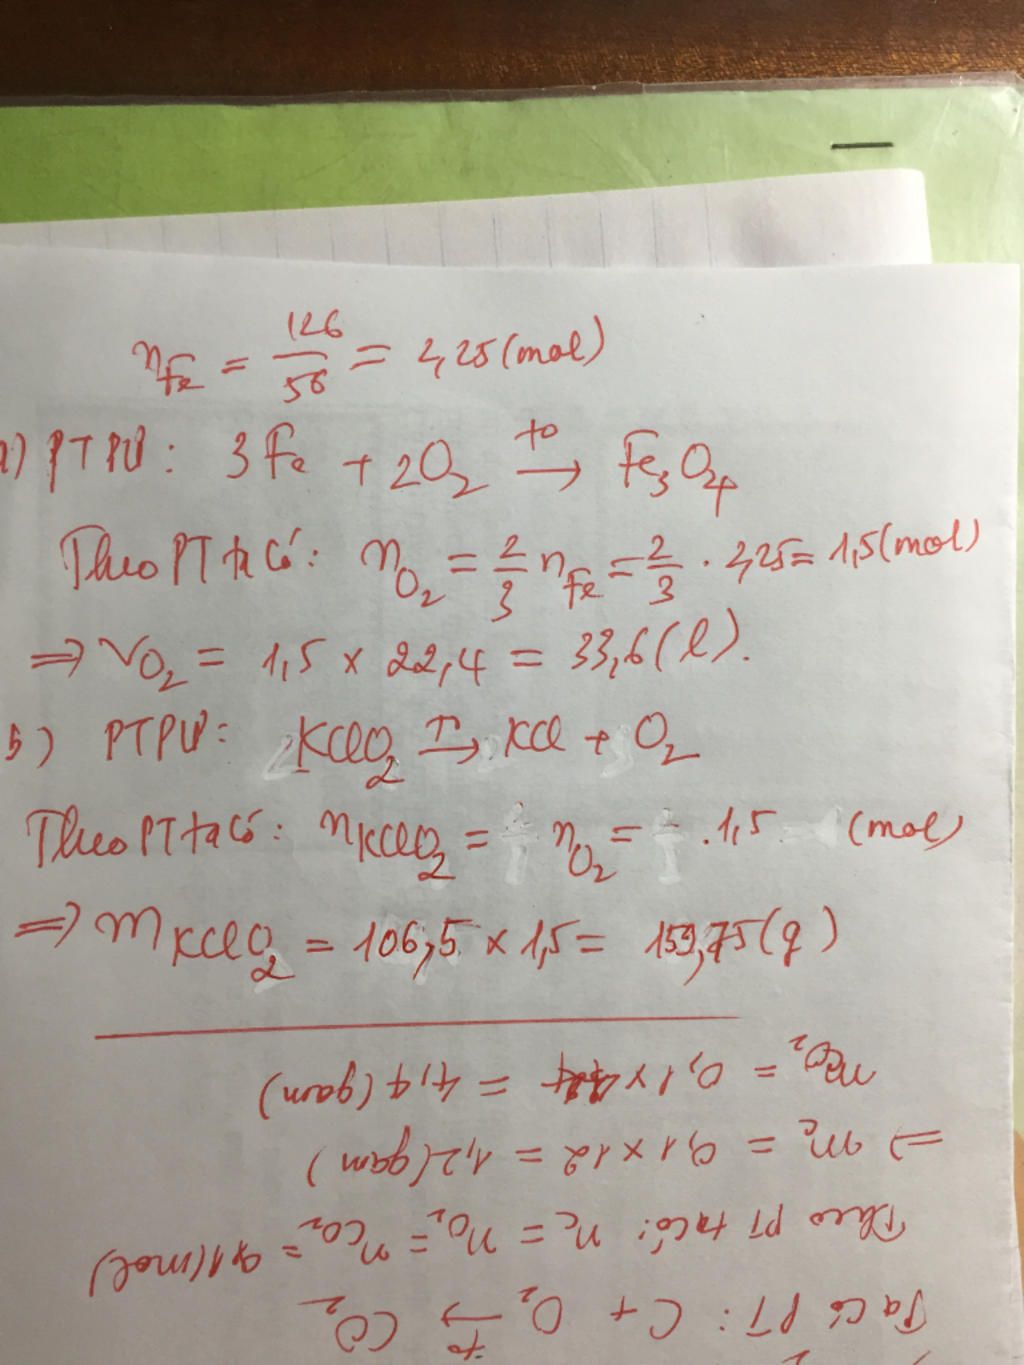 nFe = 126/56 = 2,25 (mol)
a) PTPƯ: 3Fe + 2O₂ t°→ Fe₃O₄
Theo PT ta có: nO₂ = 2/3 nFe = 2/3 . 2,25 = 1,5 (mol)
⇒ VO₂ = 1,5 × 22,4 = 33,6 (l).
b) PTPƯ: KClO₂ → KCl + O₂
Theo PT ta có: nKClO₂ = nO₂ = . 1,5 (mol)
⇒ mKClO₂ = 106,5 × 1,5 = 159,75 (g)
Ta có PT: C + O₂ t°→ CO₂
Theo PT ta có: nC = nO₂ = nCO₂ = 0,1 (mol)
⇒ mC = 0,1 × 12 = 1,2 (gam)
mCO₂ = 0,1 × 44 = 4,4 (gam)